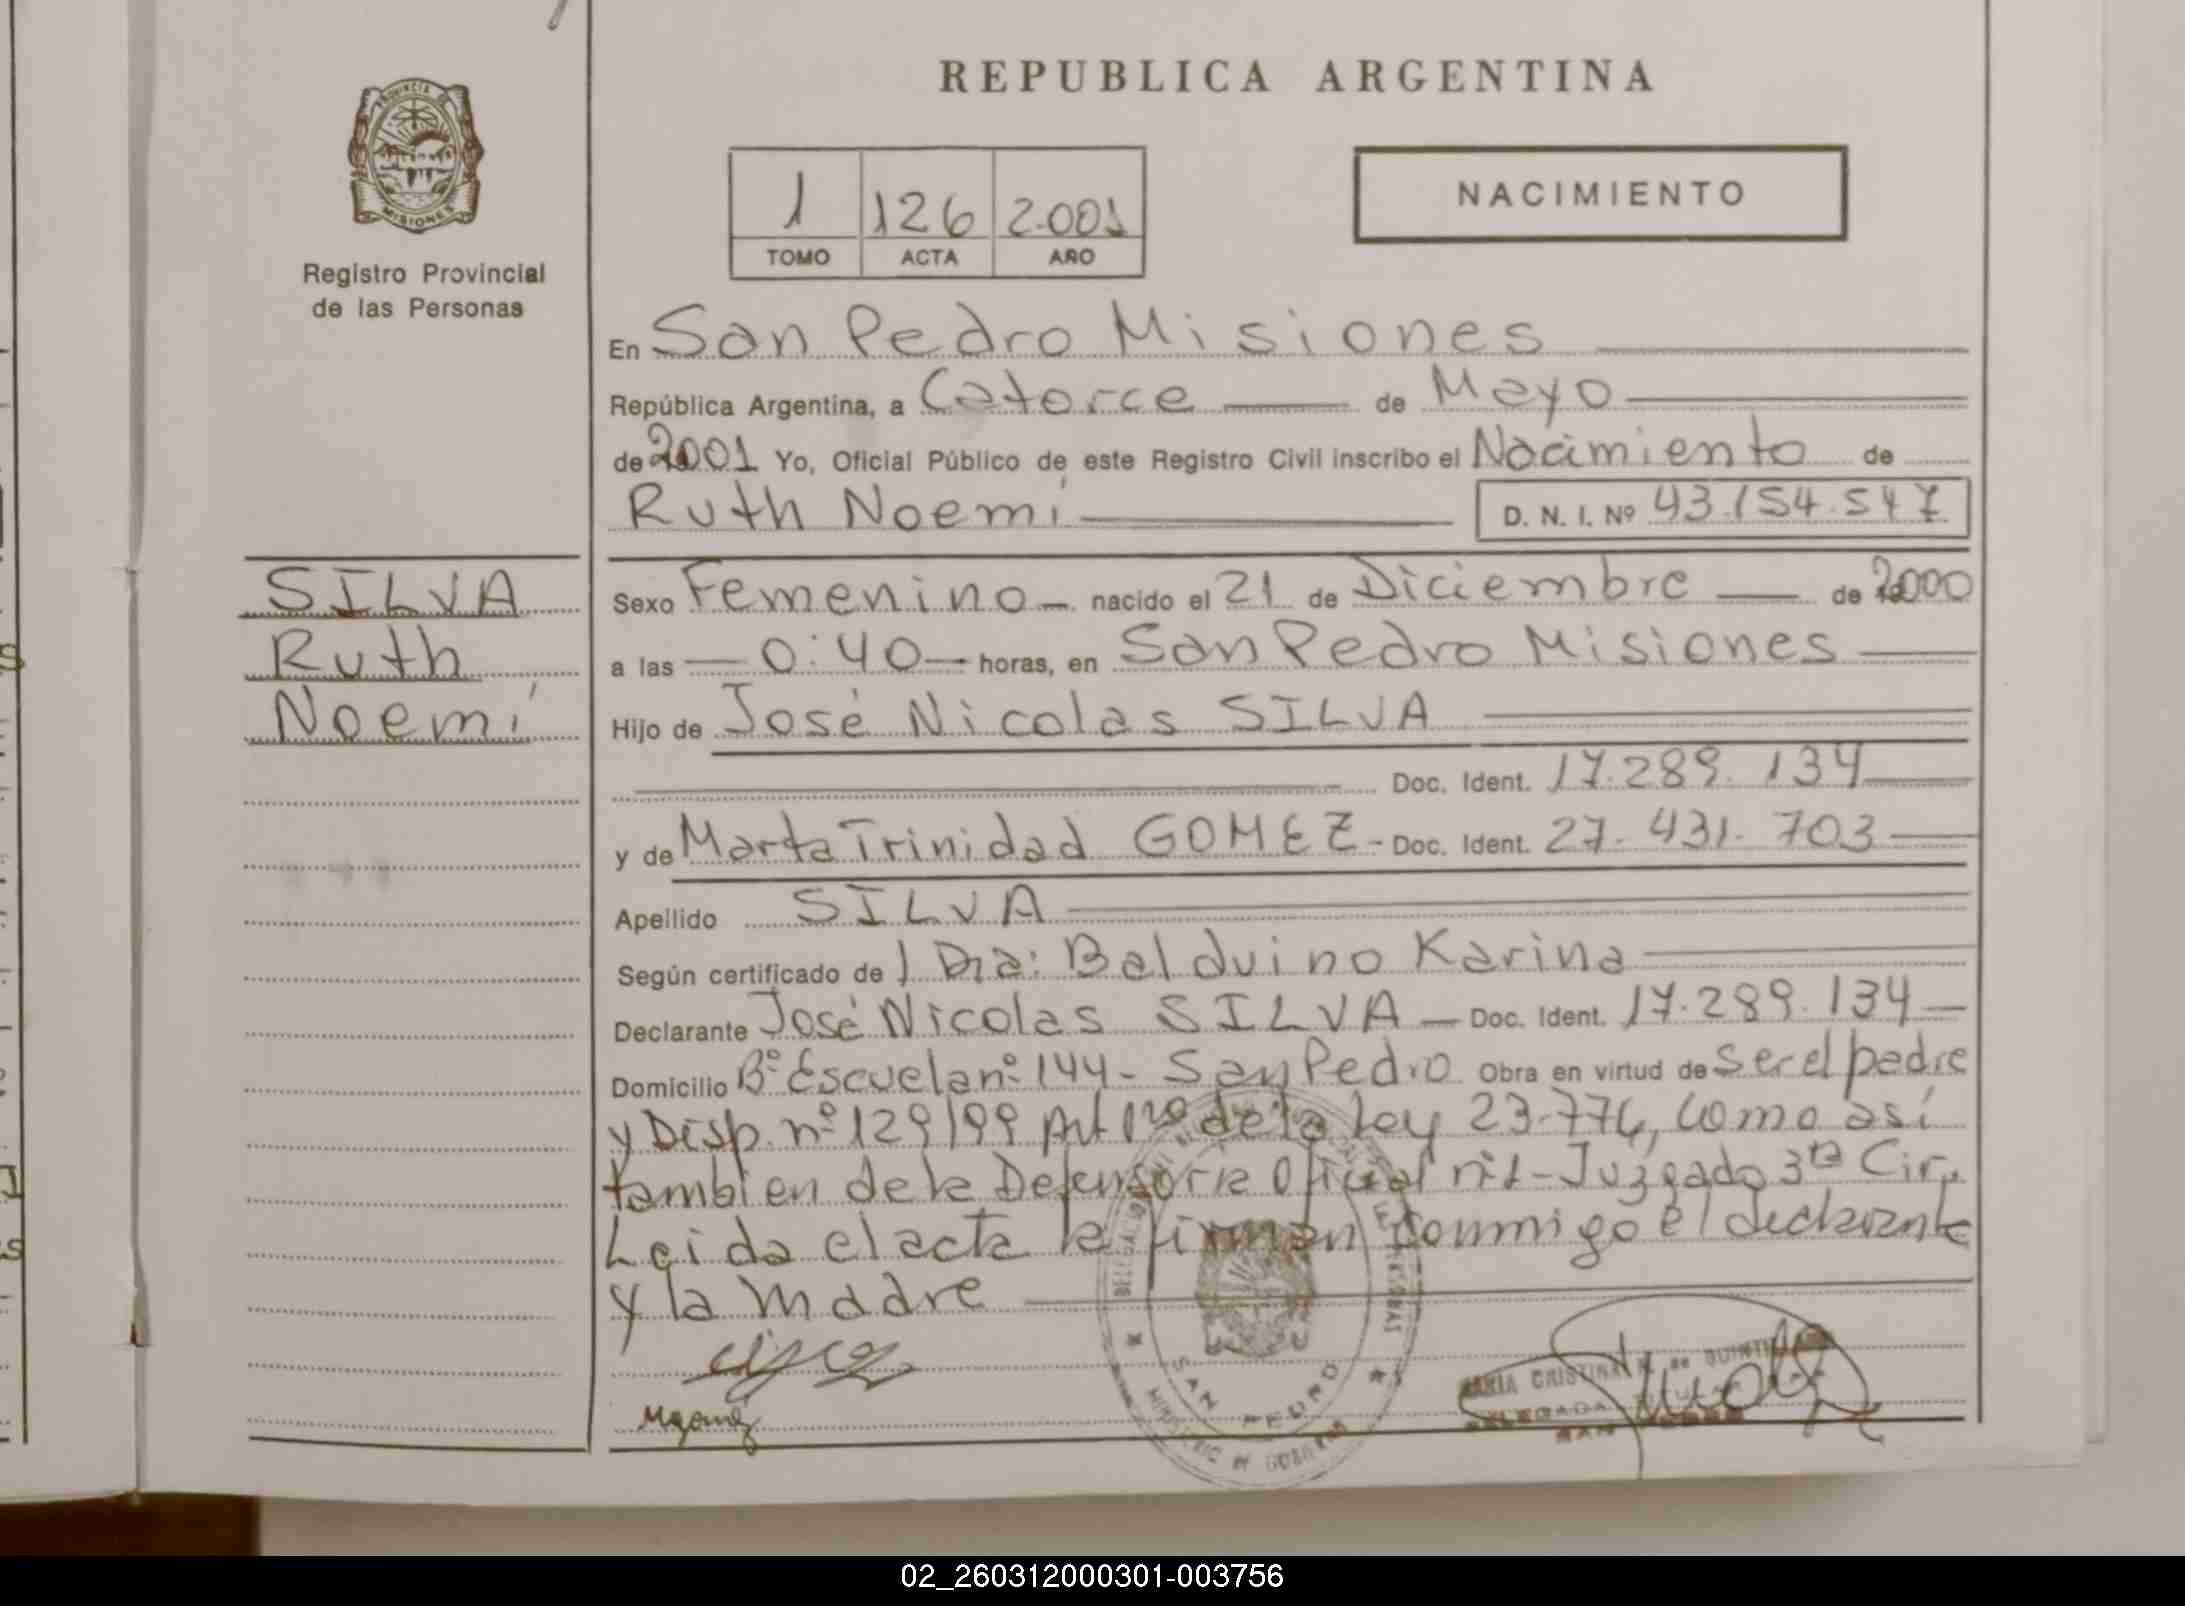 REPUBLICA ARGENTINA
PROVINCIA DE
MISIONES
Registro Provincial
de las Personas
1 126 2.001
TOMO ACTA AÑO
NACIMIENTO
En San Pedro Misiones
República Argentina, a Catorce de Mayo
de 2001 Yo, Oficial Público de este Registro Civil inscribo el Nacimiento de
Ruth Noemí D. N. I. Nº 43.154.547
SILVA
Ruth
Noemí
Sexo Femenino nacido el 21 de Diciembre de 2000
a las 0:40 horas, en San Pedro Misiones
Hijo de José Nicolas SILVA
Doc. Ident. 17.289.134
y de Marta Trinidad GOMEZ - Doc. Ident. 27.431.703
Apellido SILVA
Según certificado de Dra: Balduino Karina
Declarante José Nicolas SILVA Doc. Ident. 17.289.134
Domicilio Bº Escuela nº 144 - San Pedro Obra en virtud de Ser el padre
y Disp. nº 129/99 Art 1ro de la Ley 23.776, como así
tambien de la Defensoria Oficial nº 1 - Juzgado 3ra Cir.
Leida el acta la firman conmigo el declarante
y la Madre
Mgomez
SAN PEDRO
MINISTERIO DE GOBIERNO
MARIA CRISTINA
DELEGADA TITULAR
SAN PEDRO
02_260312000301-003756